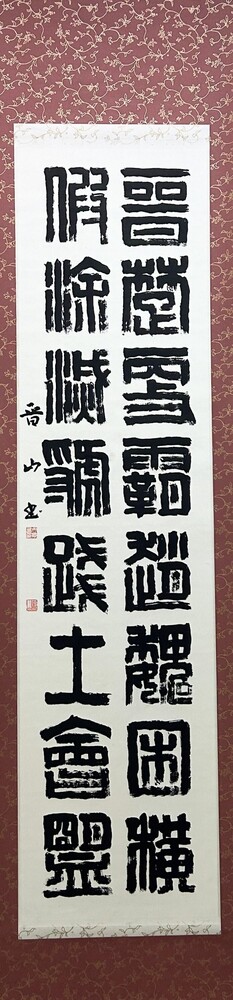 晉楚更霸趙魏困橫
假涂滅虢踐土會盟
晋山書